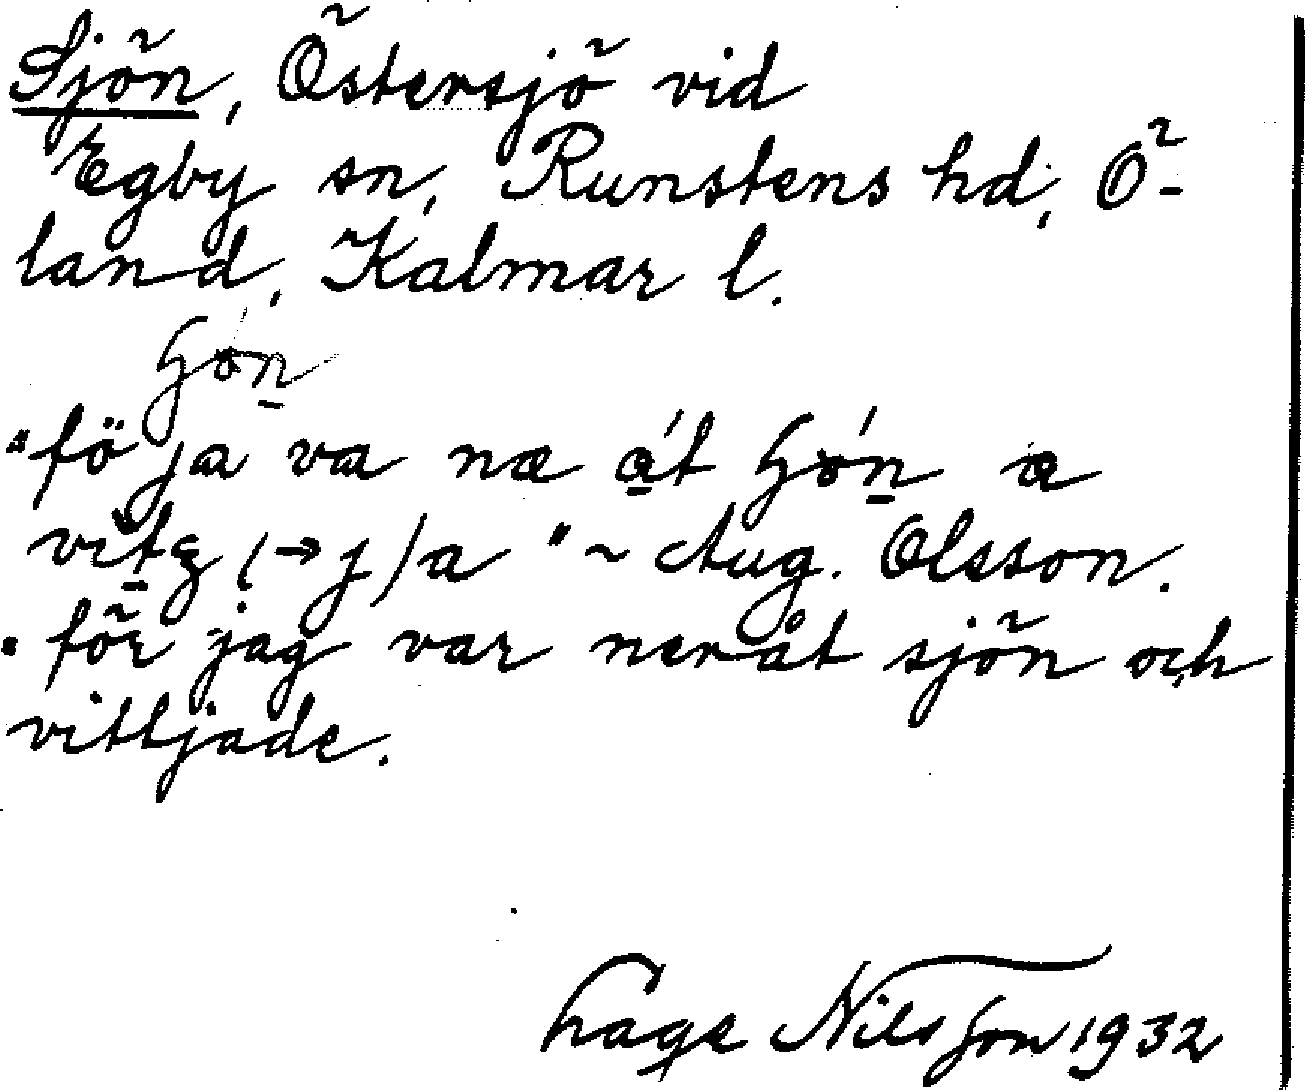 Sjön, Östersjö vid
Egby sn, Runstens hd, Ö-
land, Kalmar l.
"fö ja va næ
a" ~ Aug. Olsson.
"för jag var neråt sjön och
vittjade.
Hage Nilsson 1932